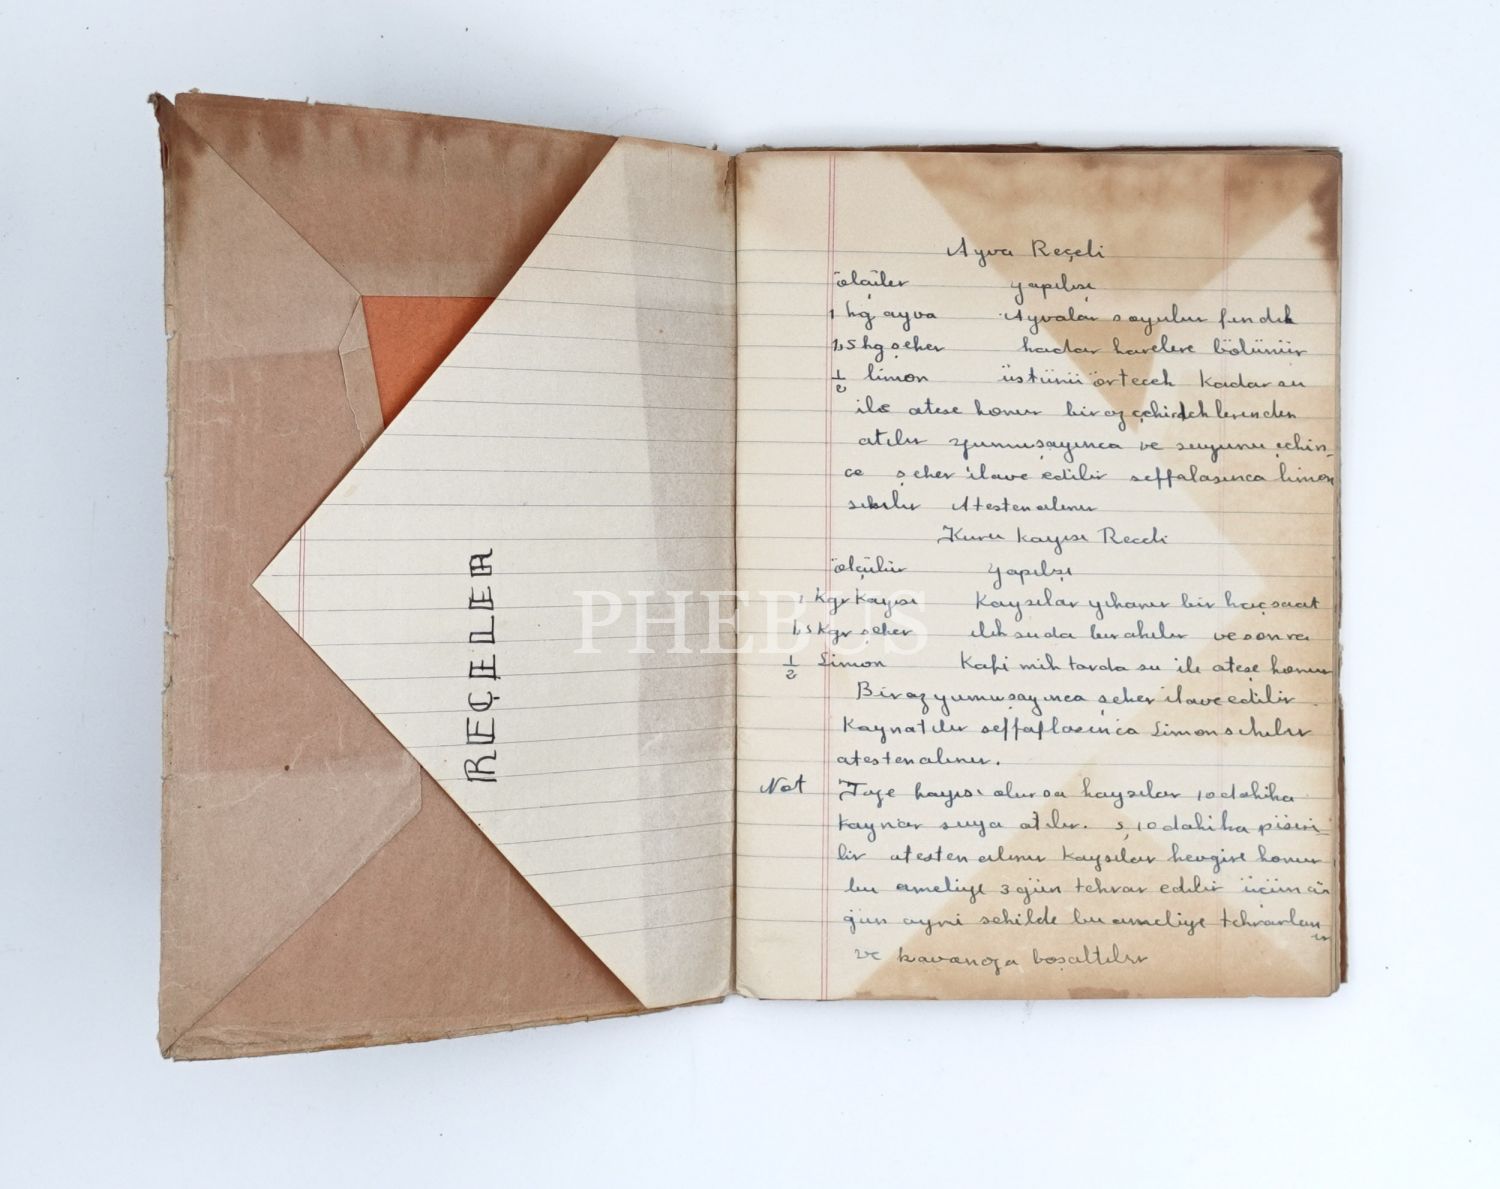 REÇELLER
Ayva Reçeli
ölçüler yapılışı
1 kg ayva Ayvalar soyulur fındık
1,5 kg şeker kadar karelere bölünür
1/2 limon üstünü örtecek kadar su
ile ateşe konur biraz çekirdeklerinden
atılır yumuşayınca ve suyunu çekin-
ce şeker ilave edilir şeffalaşınca limon
sıkılır Ateşten alınır
Kuru kayısı Reçeli
ölçülür yapılışı
1 Kgr Kayısı Kaysılar yıkanır bir kaç saat
1,5 Kgr şeker ılık suda bırakılır ve sonra
1/2 Limon Kafi miktarda su ile ateşe konur
Biraz yumuşayınca şeker ilave edilir
Kaynatılır şeffaflaşınca Limon sıkılır
ateşten alınır.
Not Taze kayısı olursa kaysılar 10 dakika
kaynar suya atılır. 5, 10 dakika pişiri-
lir ateşten alınır kaysılar kevgire konur
bu ameliye 3 gün tekrar edilir üçüncü
gün ayni şekilde bu ameliye tekrarlanır
ve kavanoza boşaltılır
PHEBUS